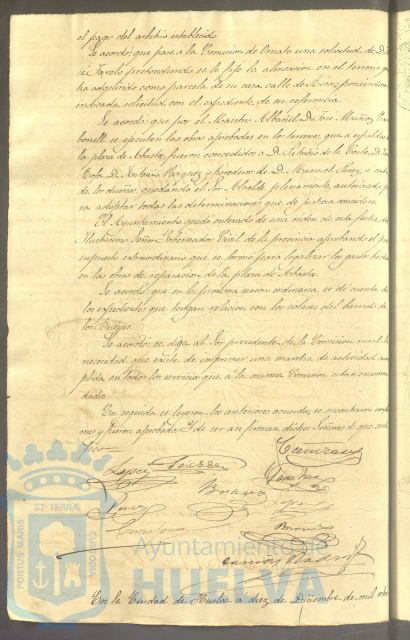 el pago del arbitrio establecido
Se acordó: que pase á la Comision de Ornato una solicitud de D.
se Farelo pretendiendo se le fije la alineacion en el terreno q
ha adquirido como parcela de su casa calle de
indicada solicitud con el expediente de su referencia.
Se acordó: que por el Maestro Albañil D. José Muñoz
bonell se ejecuten las obras aprobadas en los terrenos, que a espaldas
la plaza de Abasto, fueron concedidos a D. Patricio de la Corte, D.
Cota, D. Antonio Vazquez y herederos de D. Manuel Perez,
de los dueños, quedando el Sor. Alcalde plenamente autorizado p
ra adoptar todas las determinaciones que de justicia considere.
El Ayuntamiento quedó enterado de una orden de esta fecha de
Ilustrisimo Señor Gobernador Civil de la provincia aprobando el pre
supuesto extraordinario que se formó para legalizar los gastos hechos
en las obras de reparacion de la plaza de Abasto.
Se acordó: que en la proxima sesion ordinaria se dé cuenta de
los expedientes que tengan relacion con los solares del barrio de
los
Se acordó: se diga al Sor. presidente de la Comision rural la
necesidad que existe de imprimir una marcha de actividad com
pleta en todos los servicios que á la misma Comision estan encomen
dados.
En seguida se leyeron los anteriores acuerdos, se encontraron confor
mes y fueron aprobados. Y de ser asi firman dichos Señores de que certi
fico—
Lopez
Sanchez
Bravo
Perez
Gonzalez
PORTUS MARIS
ET TERRAE
CUSTODIA
Ayuntamiento de
HUELVA
En la Ciudad de Huelva a diez de Diciembre de mil ocho